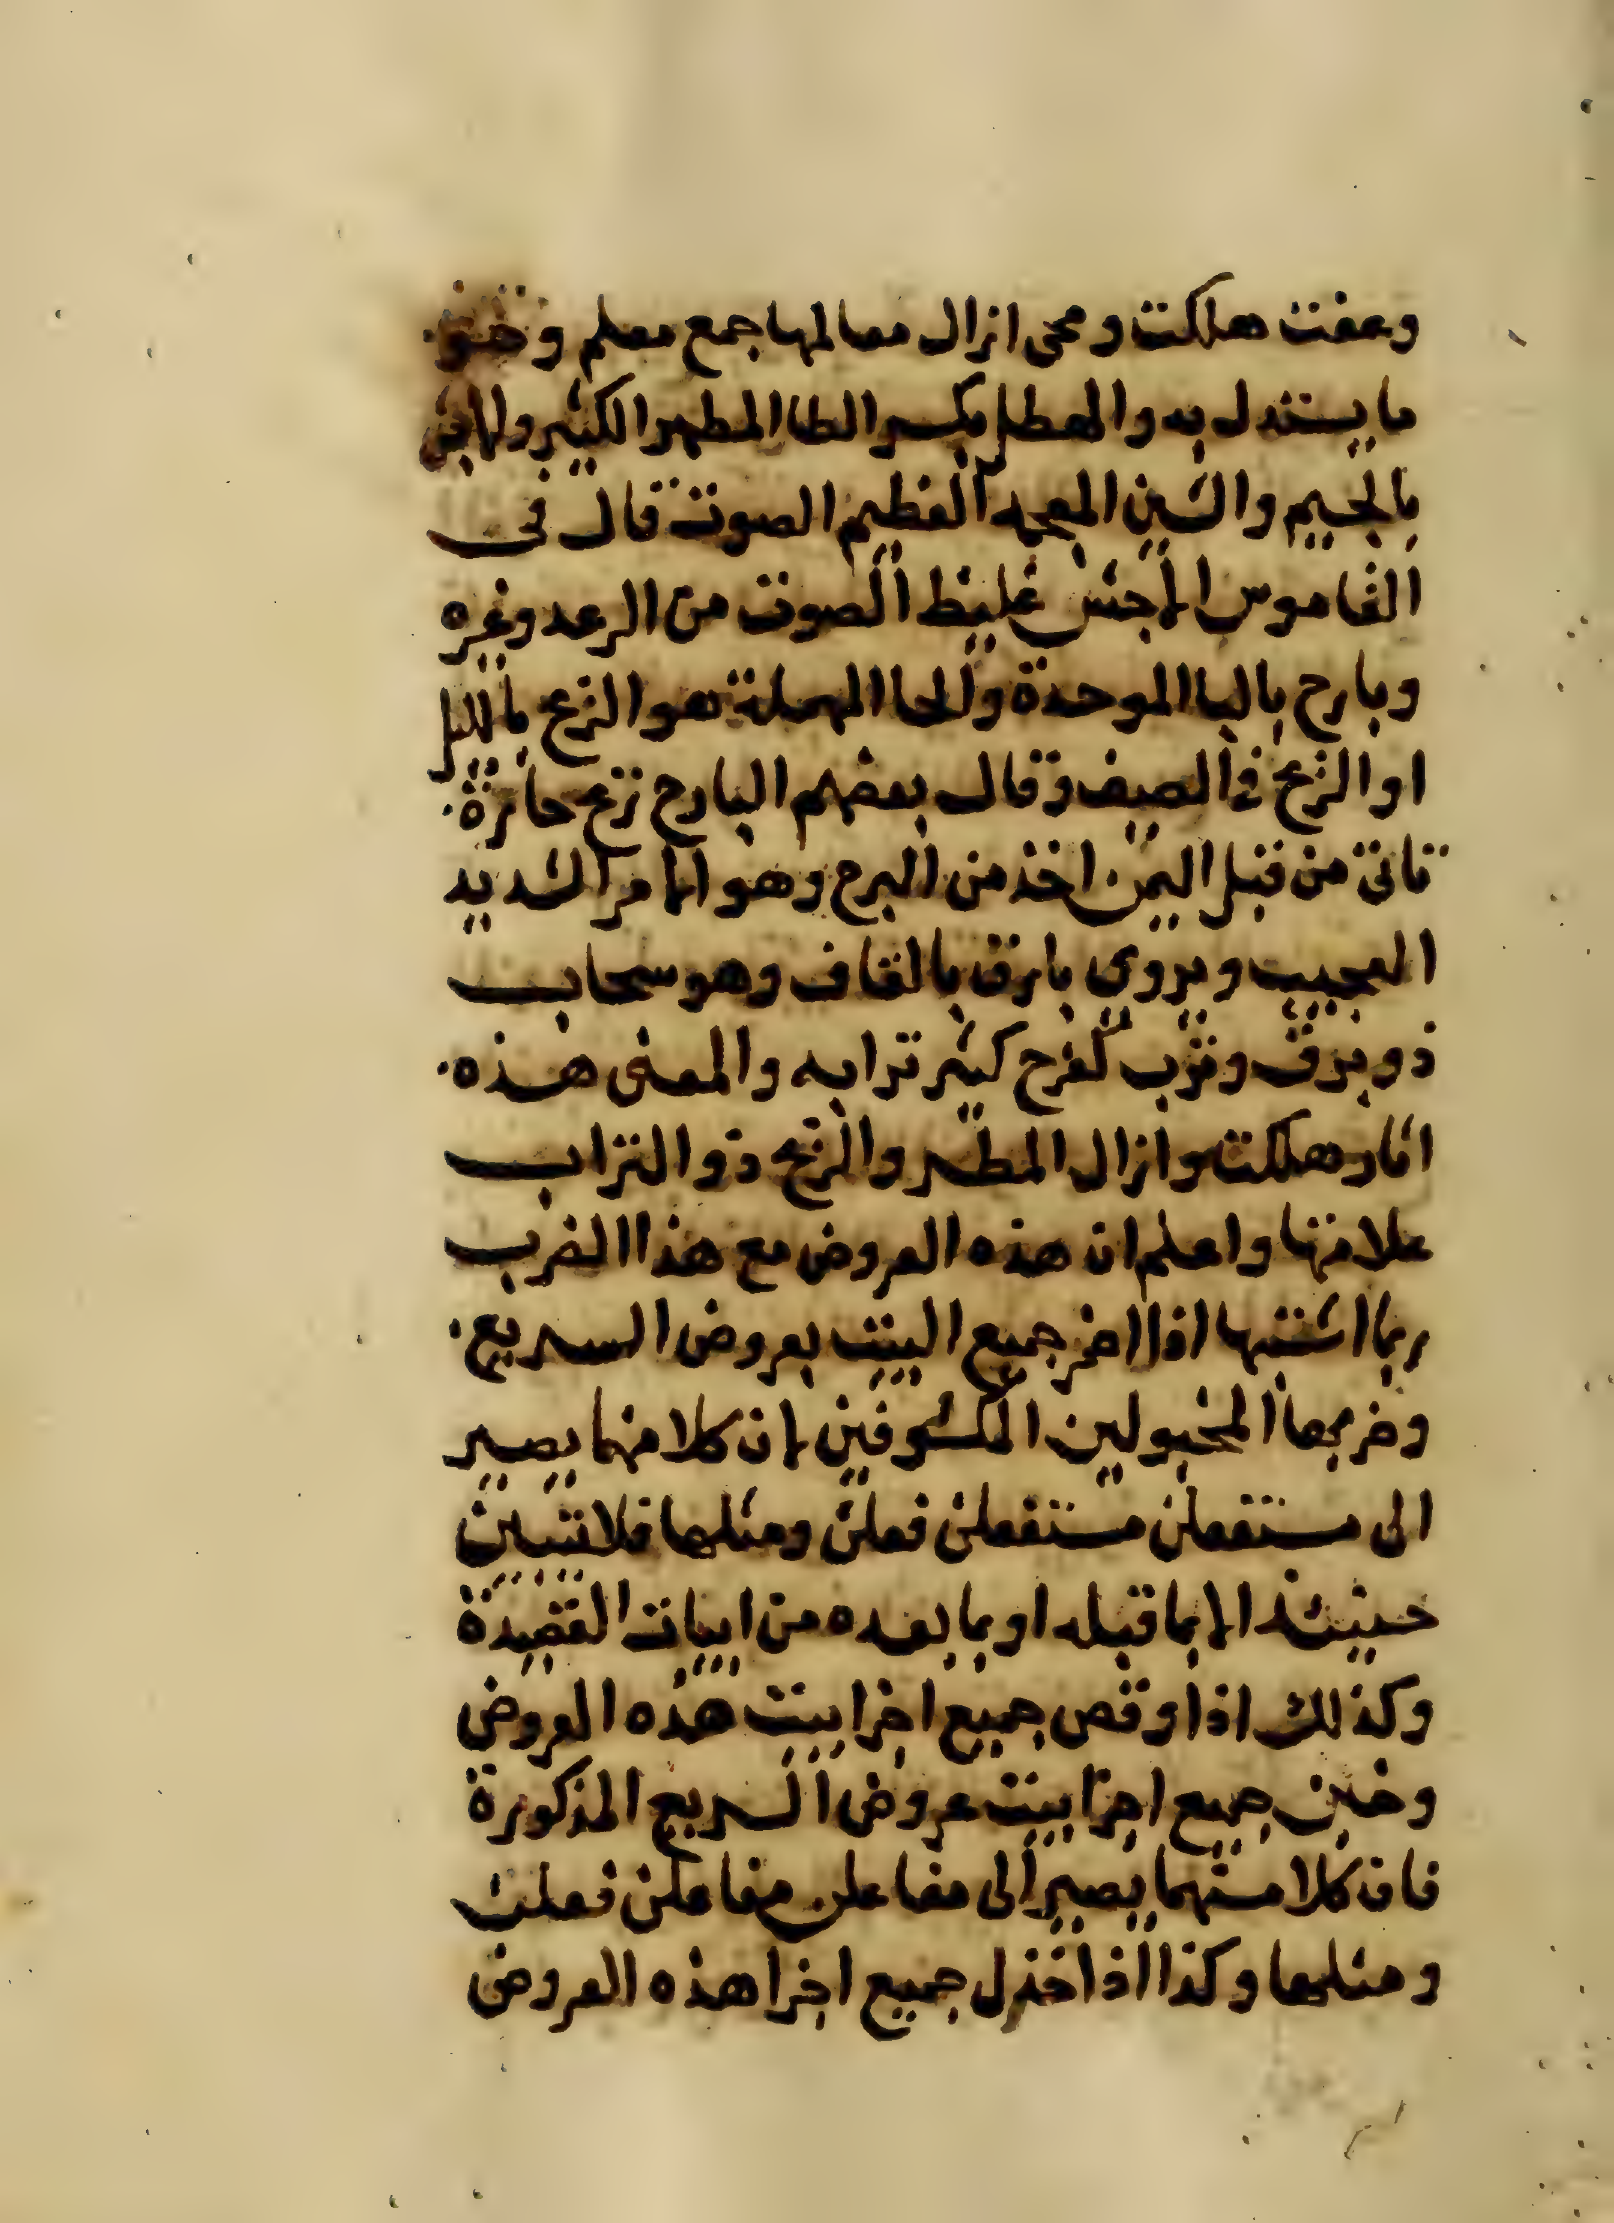 وعفت هلكت ومحى ازال معالمها جمع معلم وهو
ما يستدل به والهطل بكسر الطا المطهر الكثير والاجش
بالجيم والشين المعجمه العظيم الصوت قال فى
القاموس الاجش غليظ الصوت من الرعد وغيره
وبارح بالبا الموحدة والحا المهملة هو الريح بالليل
او الريح في الصيف وقال بعضهم البارح ريح حارة
تاتى من قبل اليمن اخذ من البرح وهو الامر الشديد
العجيب ويروي بارق بالقاف وهو سحاب
ذو برق وترب كفرح كثير ترابه والمعنى هذه
اثار هلكت وازال المطر والريح ذو التراب
علامتها واعلم ان هذه العروض مع هذا الضرب
ربما اشتبها اذا اضمر جميع البيت بعروض السريع
وضربها المخبولين المكشوفين لان كلا منهما يصير
الى مستفعلن مستفعلن فعلن ومثلها فلا تتبين
حينئذ الا بما قبله او بما بعده من ابيات القصيدة
وكذلك اذا وقص جميع اجزا بيت هذه العروض
وخبن جميع اجزا بيت عروض السريع المذكورة
فان كلا منهما يصير الى مفاعلن مفاعلن فعلن
ومثلها وكذا اذا خزل جميع اجزا هذه العروض